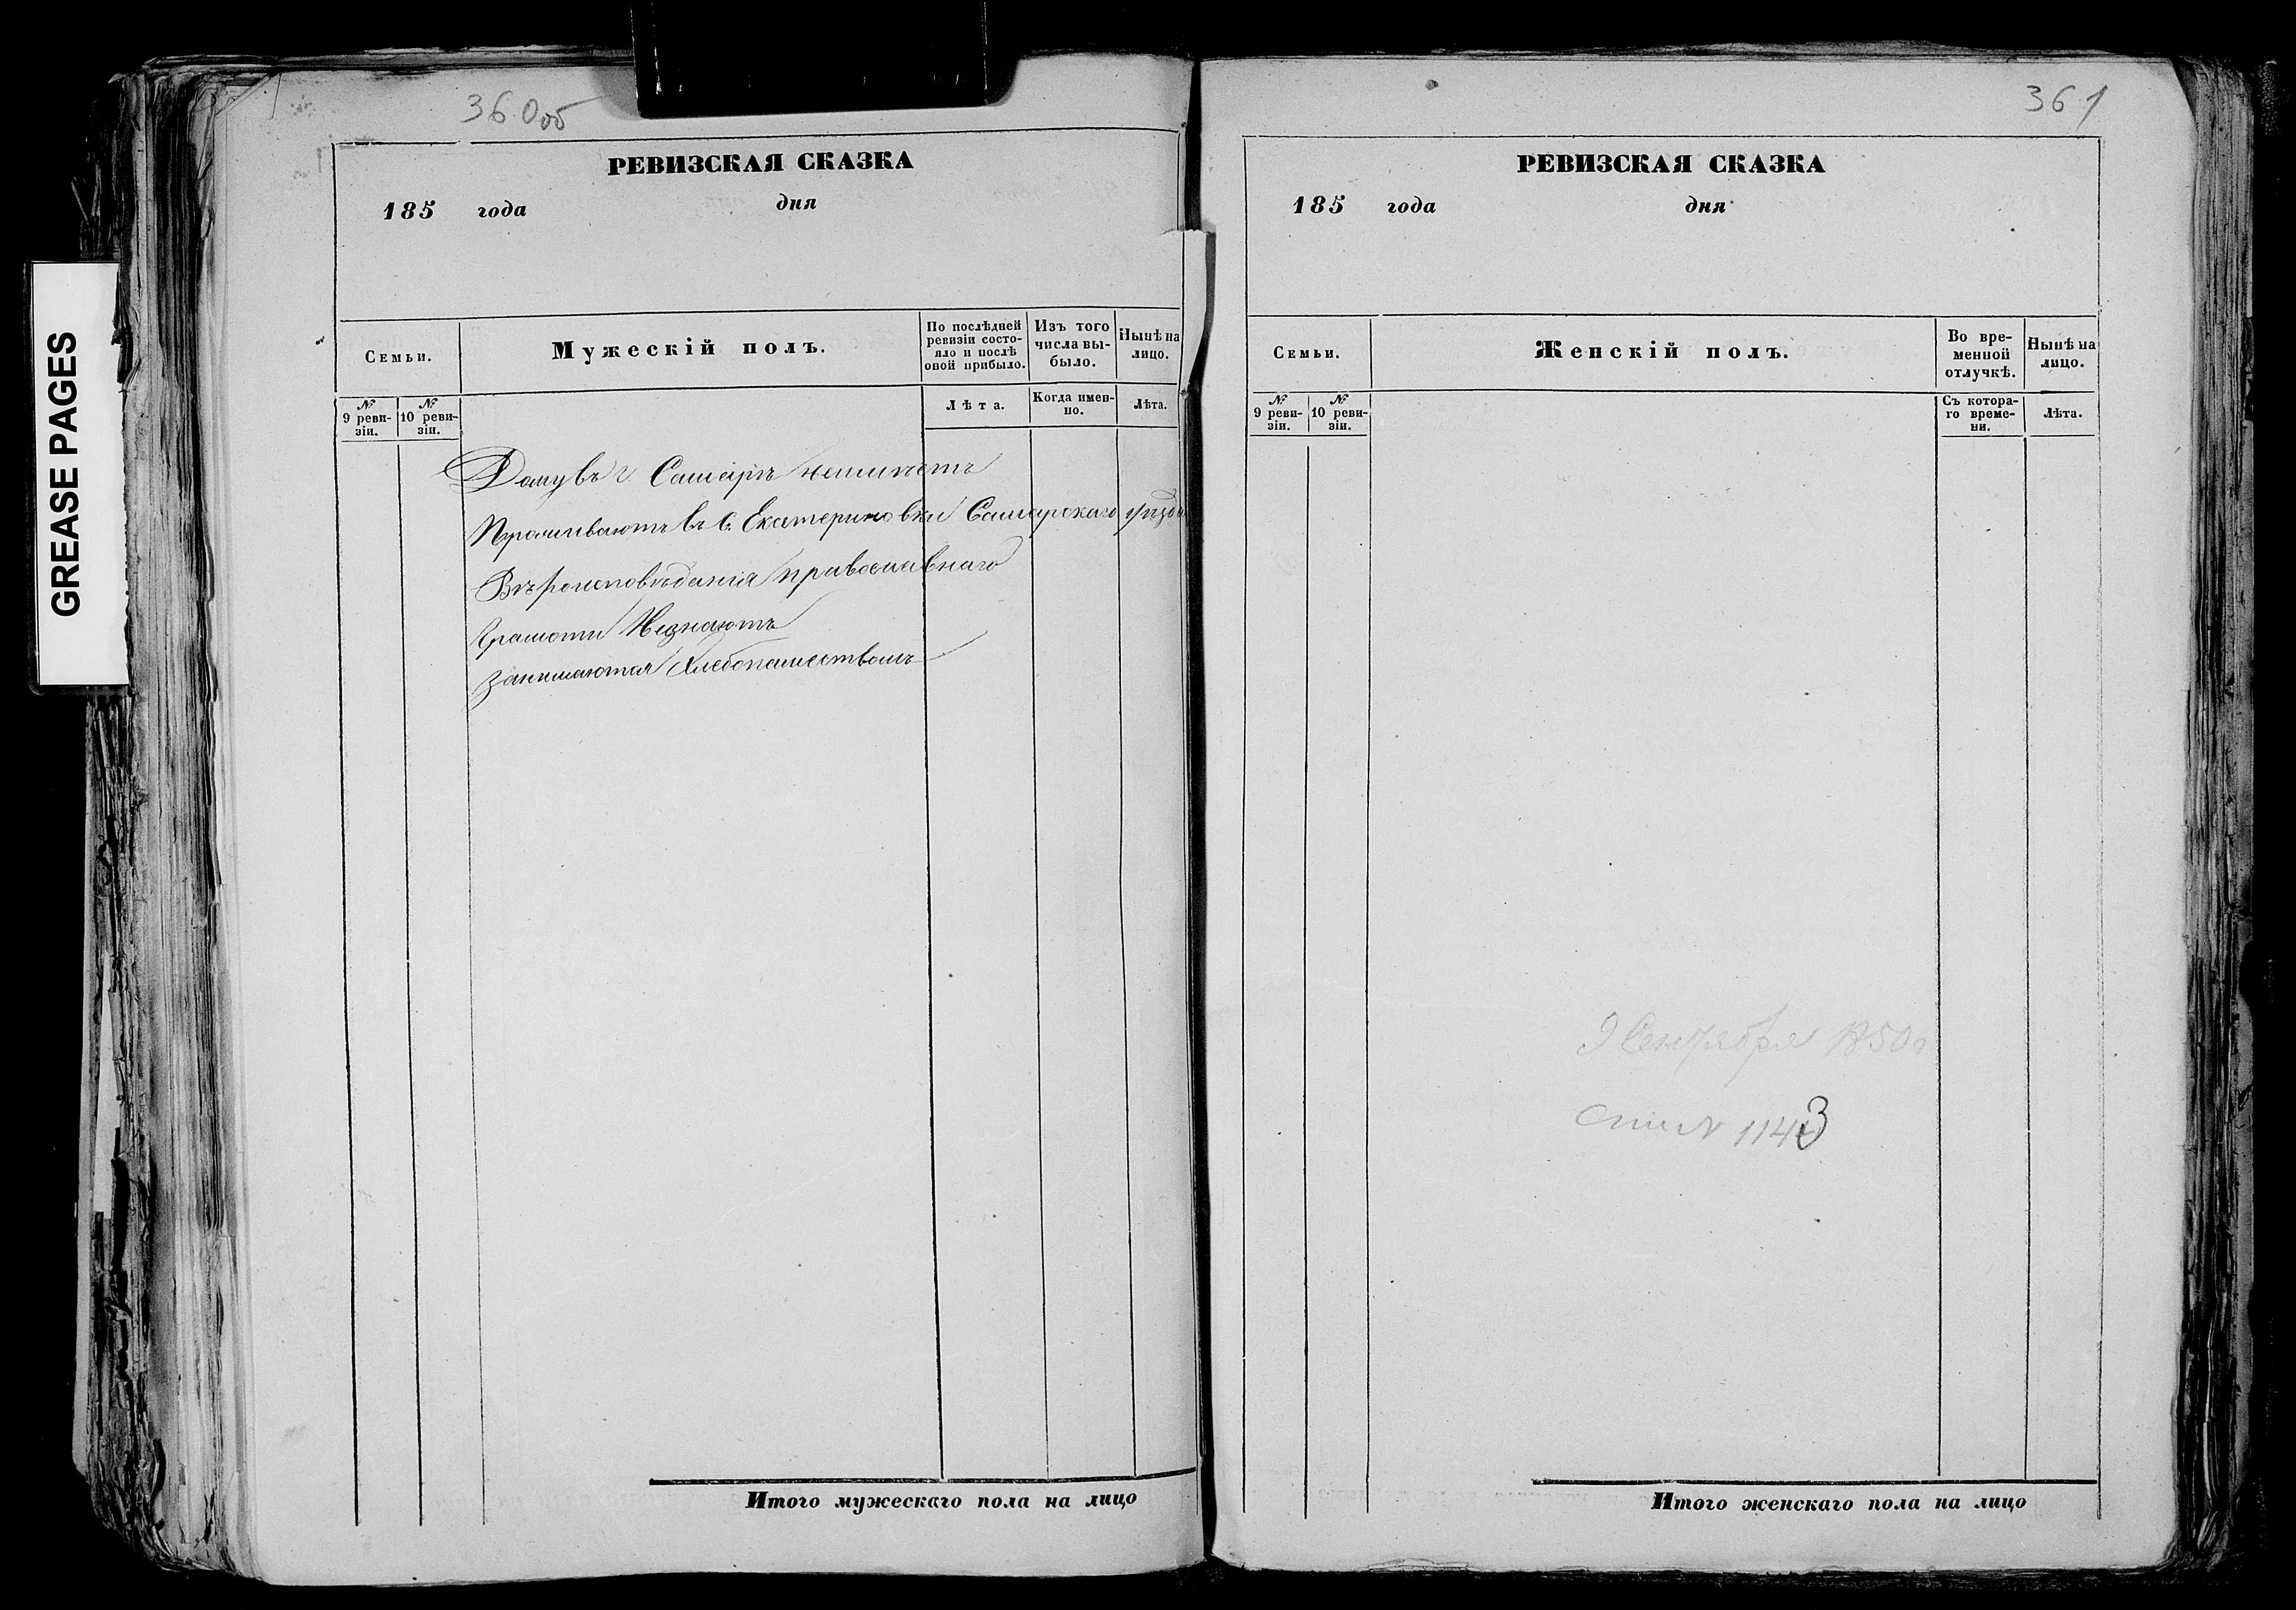 GREASE PAGES
360об
РЕВИЗСКАЯ СКАЗКА
185 года дня
Семьи.
Мужескій полъ.
По послѣдней ревизіи состояло и послѣ оной прибыло.
Изъ того числа выбыло.
Нынѣ на лицо.
№ 9 ревизіи.
№ 10 ревизіи.
Лѣта.
Когда именно.
Лѣта.
Дому въ г. Самарѣ неимѣетъ
Проживаютъ въ с. Екатериновки Самарскаго уѣзда
Вѣроисповѣданія православнаго
Грамоти Незнаютъ
Занимаются Хлебопашествомъ
Итого мужескаго пола на лицо
361
РЕВИЗСКАЯ СКАЗКА
185 года дня
Семьи.
Женскій полъ.
Во временной отлучкѣ.
Нынѣ на лицо.
№ 9 ревизіи.
№ 10 ревизіи.
Съ котораго времени.
Лѣта.
9 Сентября 1850г
1143
Итого женскаго пола на лицо